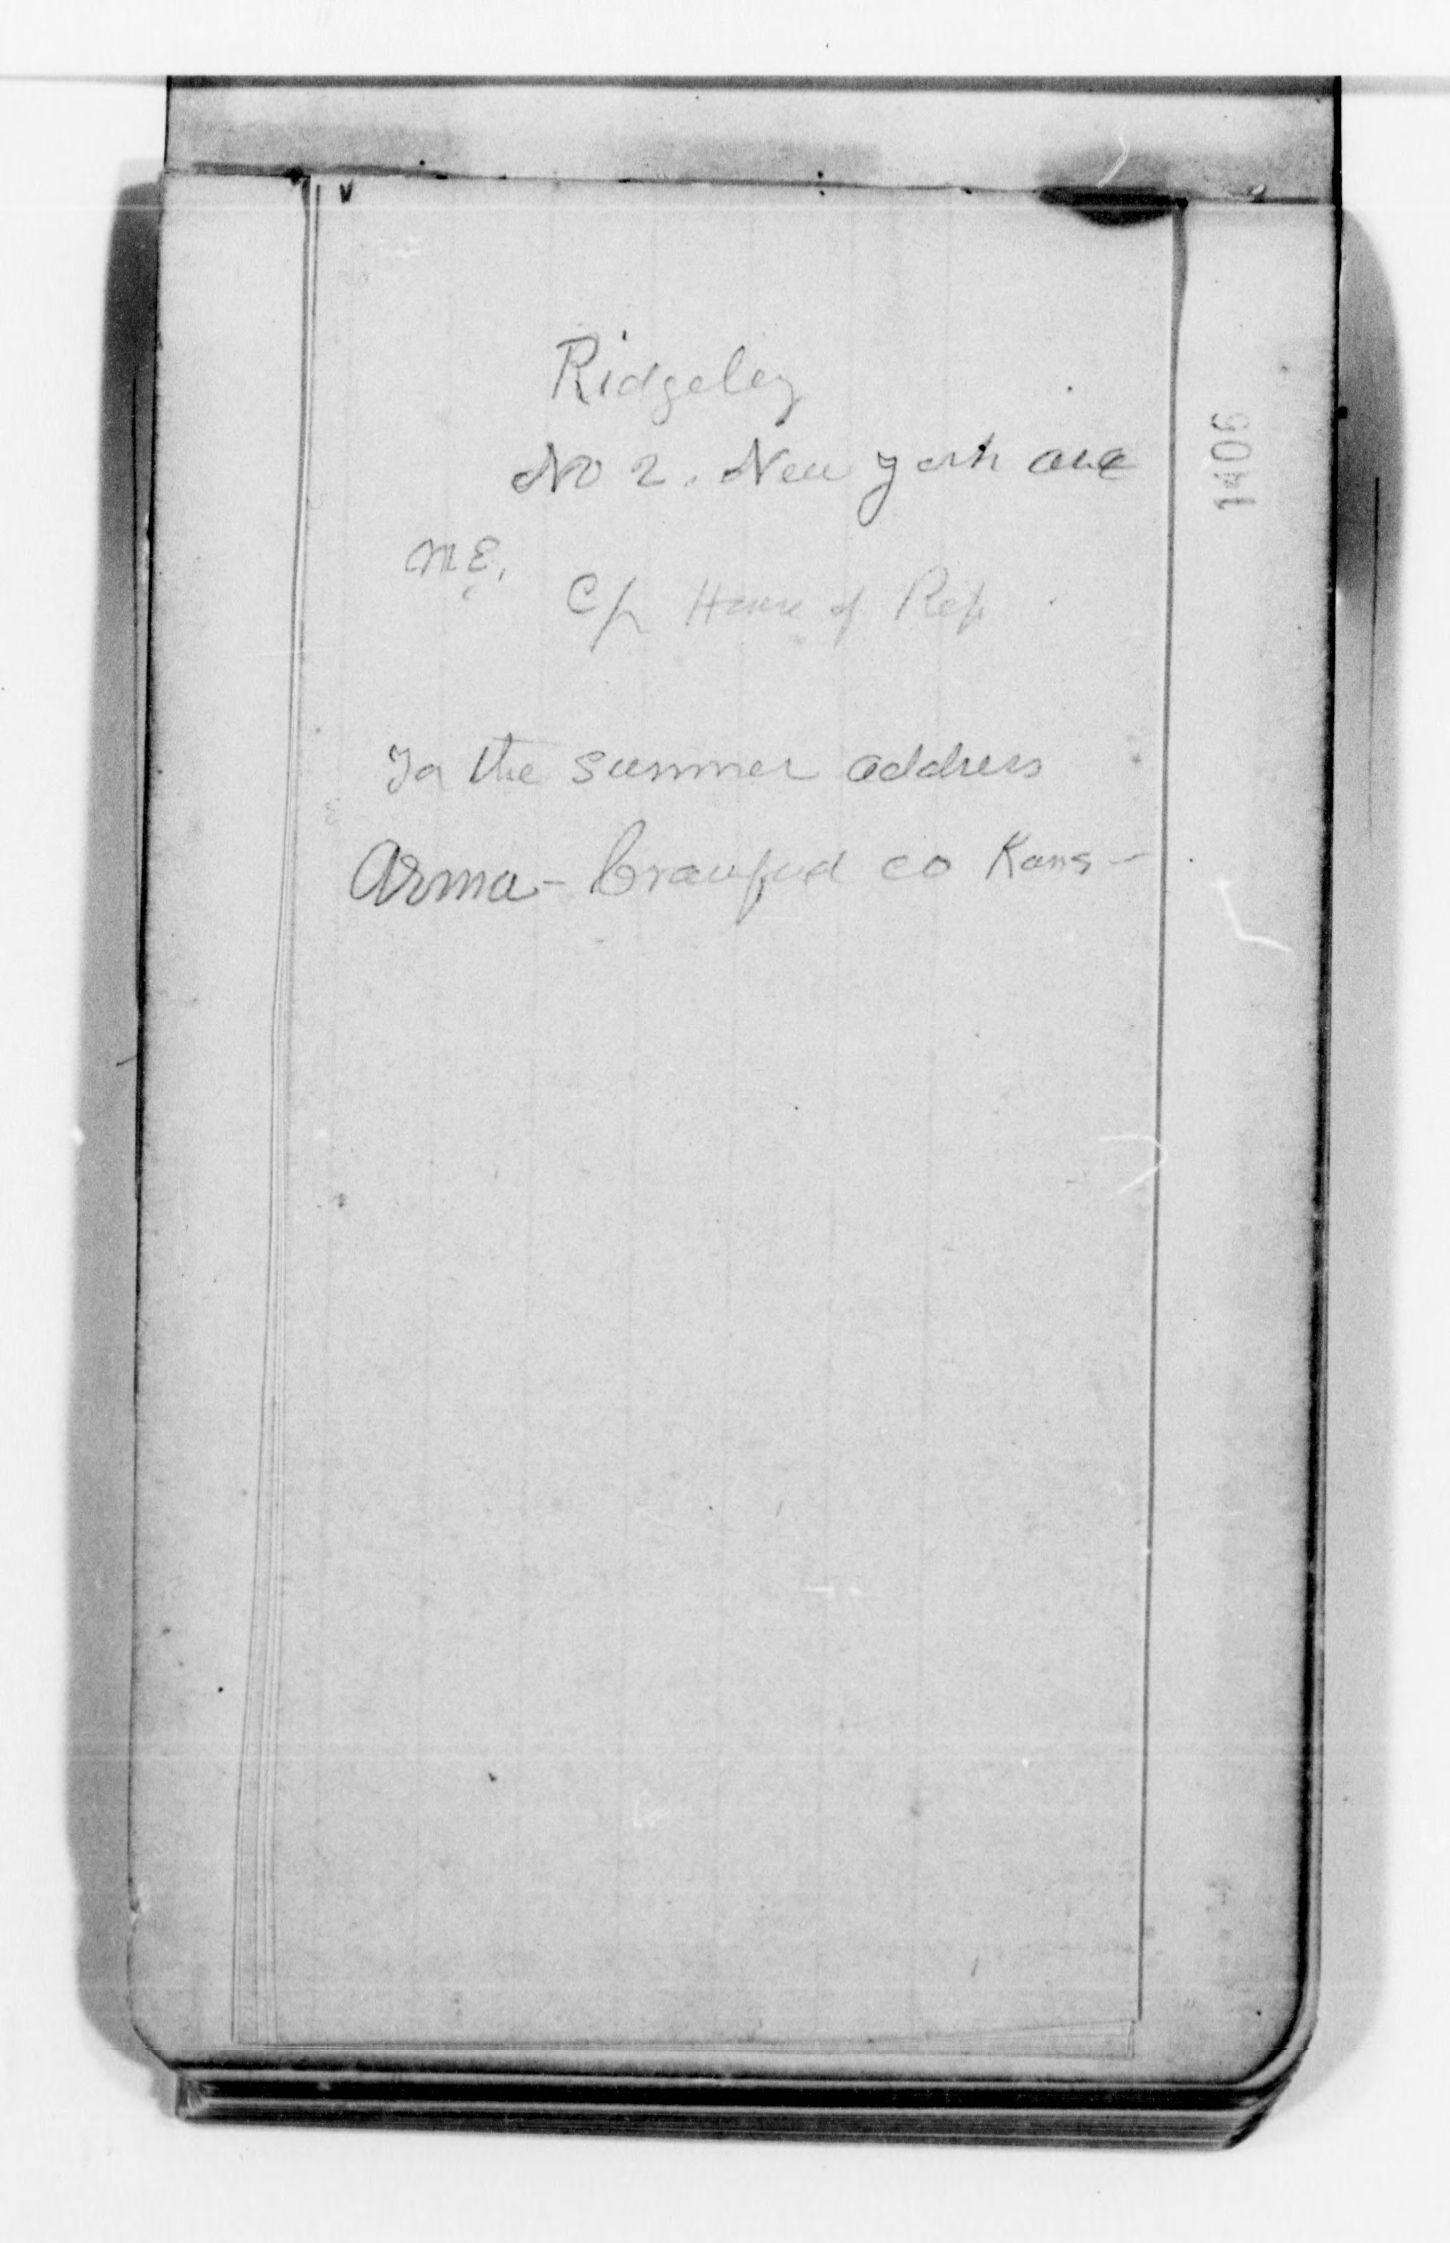 Ridgeley
No 2. New York ave
N.E.
C/o House of Rep
In the summer address
Arma - Crawford co Kans -
1406